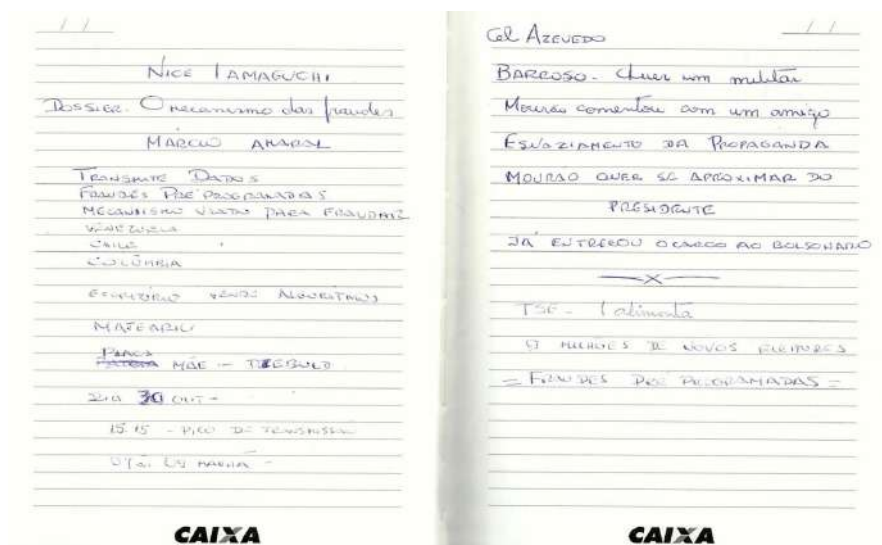 / /
NICE IAMAGUCHI
DOSSIER. O mecanismo das fraudes
MÁRCIO AMARAL
TRANSMITE DADOS
FRAUDES PRÉ PROGRAMADAS
MECANISMO VIATO PARA FRAUDAR
VENEZUELA
CHILE
COLÔMBIA
ESCRITÓRIO VENDE ALGORITMOS
PLACA
MÃE - DIEBOLD
DIA 30 OUT -
15:15 - PICO DE TRANSMISSÃO
CAIXA
/ /
Cel AZEVEDO
BARROSO - Quer um militar
Mourão comentou com um amigo
ESVAZIAMENTO DA PROPAGANDA
MOURÃO QUER SE APROXIMAR DO
PRESIDENTE
JÁ ENTREGOU O CARGO AO BOLSONARO
X
TSE - 1 alimenta
MILHÕES DE NOVOS ELEITORES
= FRAUDES PRÉ PROGRAMADAS =
CAIXA